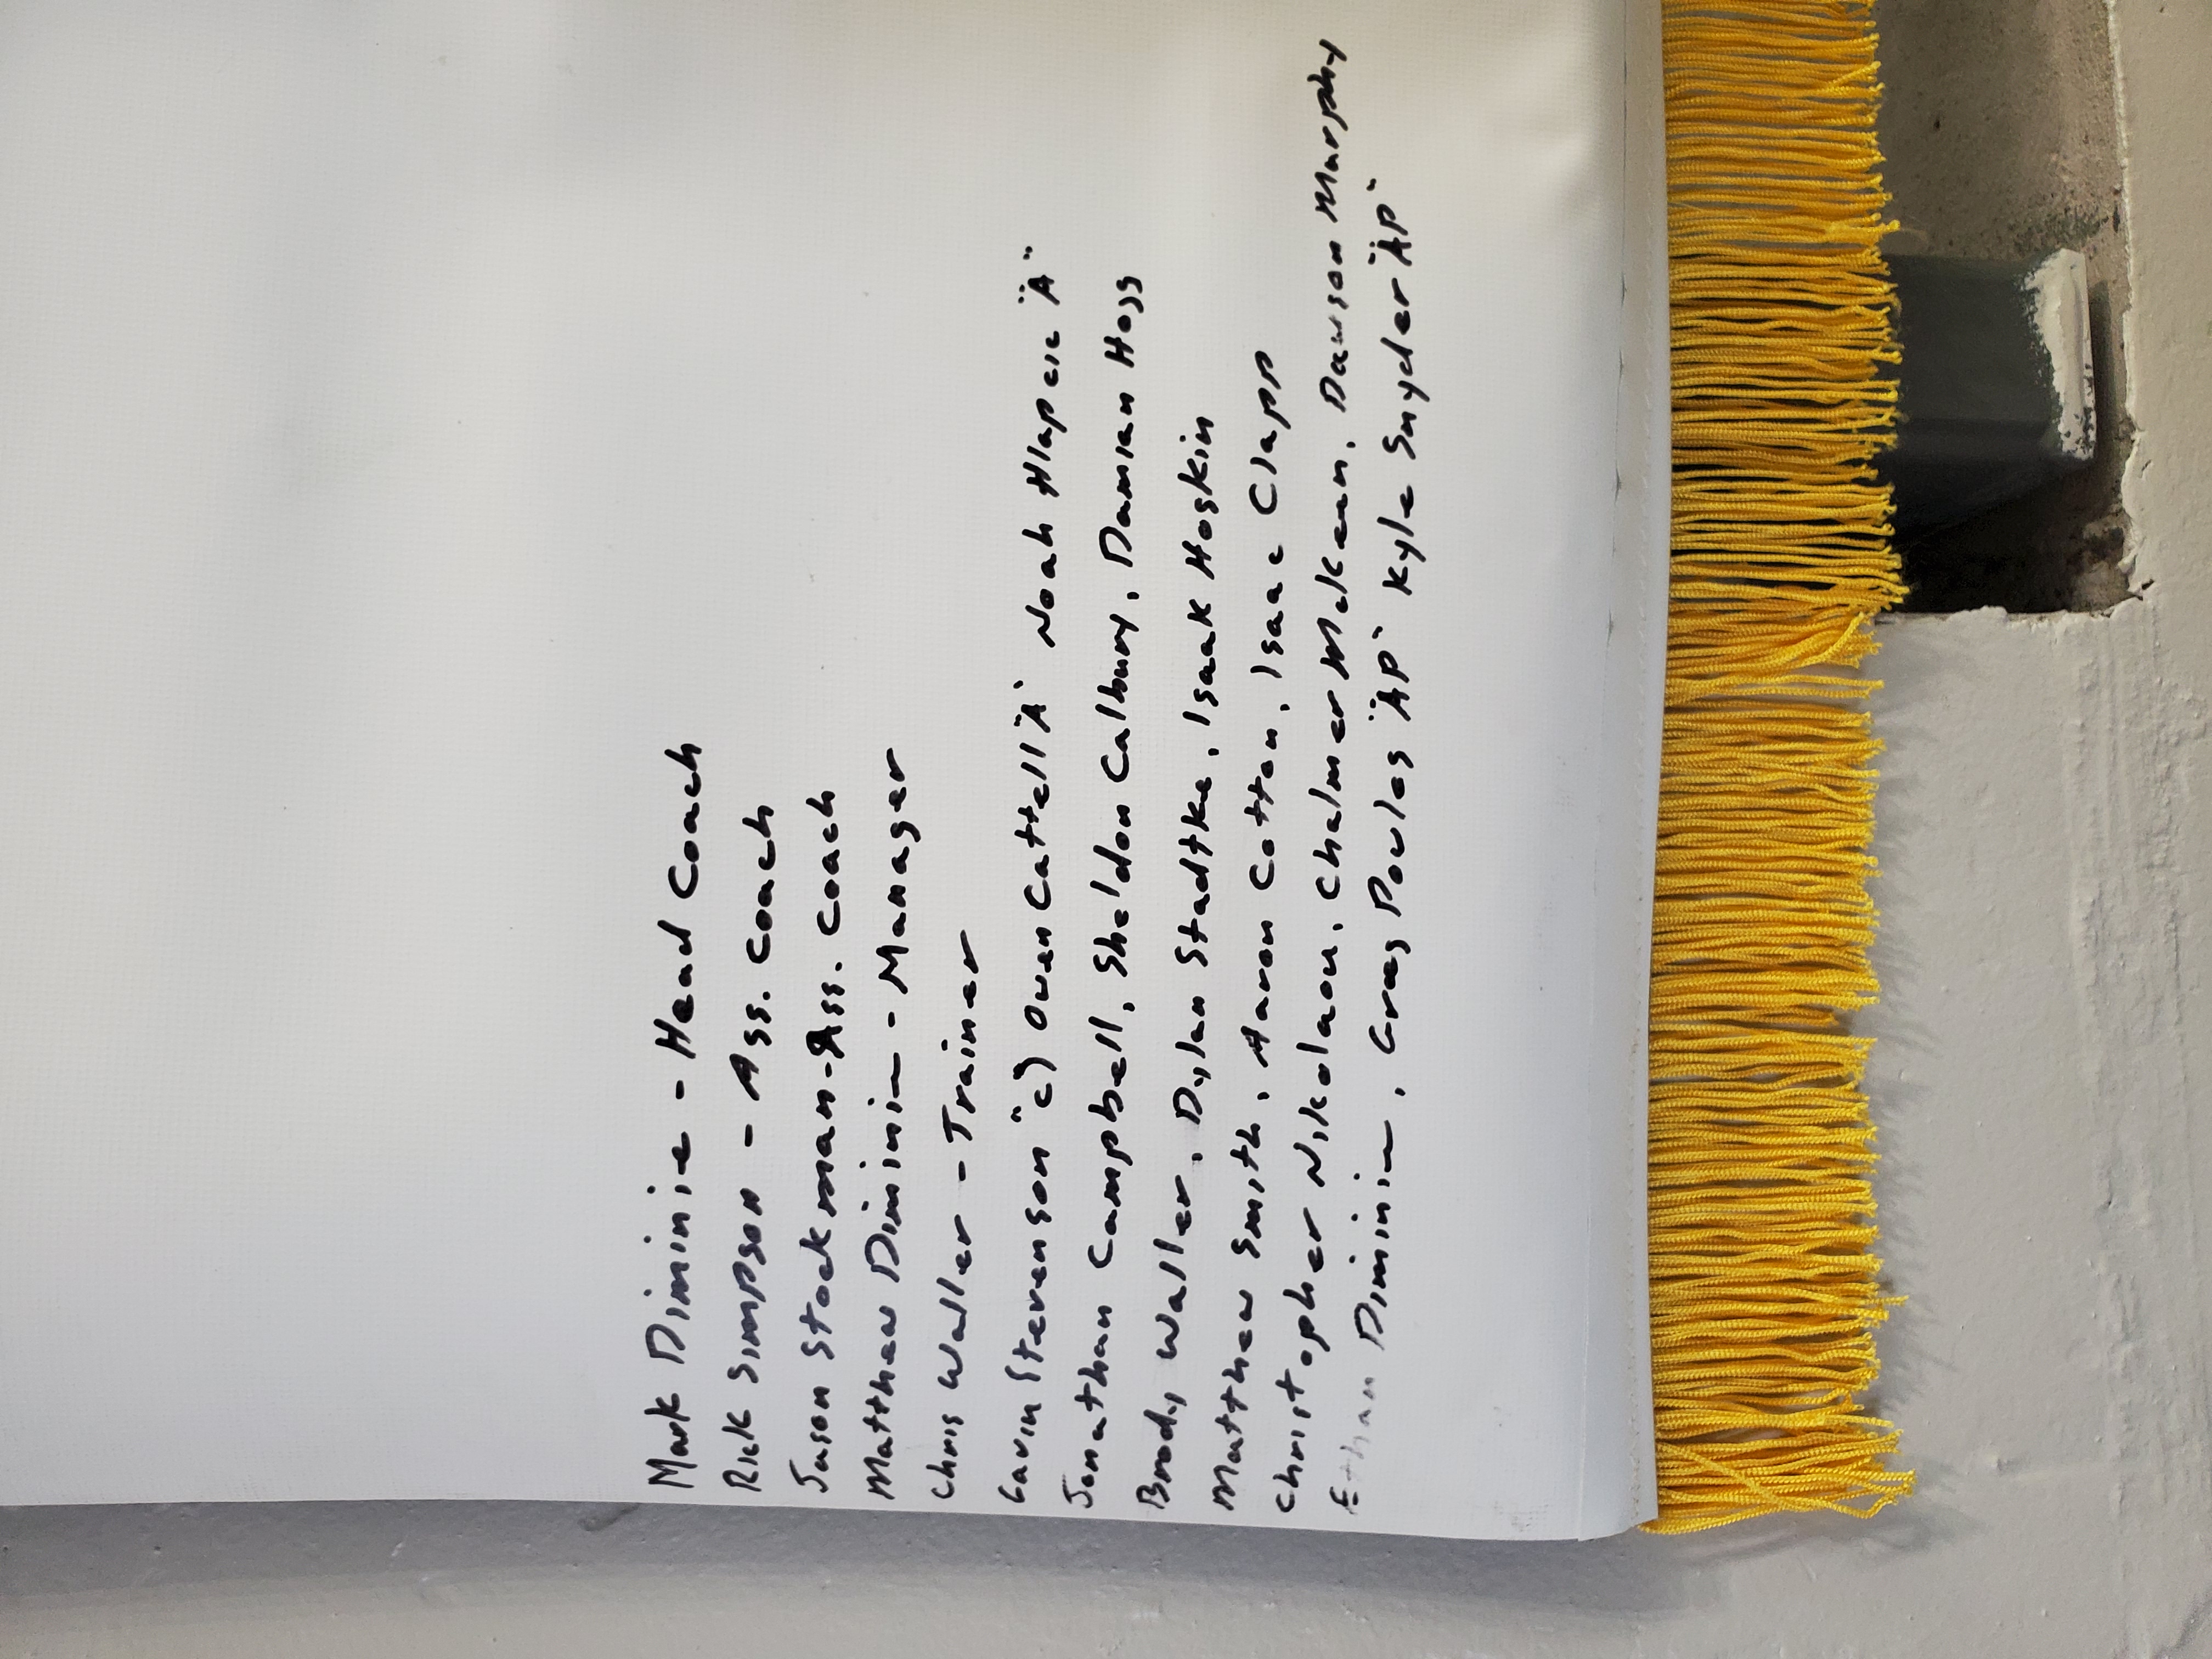 Mark Diminie - Head Coach
Rick Simpson - Ass. Coach
Jason Stockman - Ass. Coach
Matthew Diminie - Manager
Chris Waller - Trainer
Gavin Stevenson "C") Owen Cattell "A" Noah "A"
Jonathan Campbell, Sheldon Calbury, Damian Hogg
Brody Waller, Dylan Stadtke, Isaak Hoskin
Matthew Smith, Aaron Cotton, Isaac Clapp
Christopher Nikolaou, Chalmer McKeen, Dawson Murphy
Ethan Diminie, Greg Poules "AP" Kyle Snyder "AP"